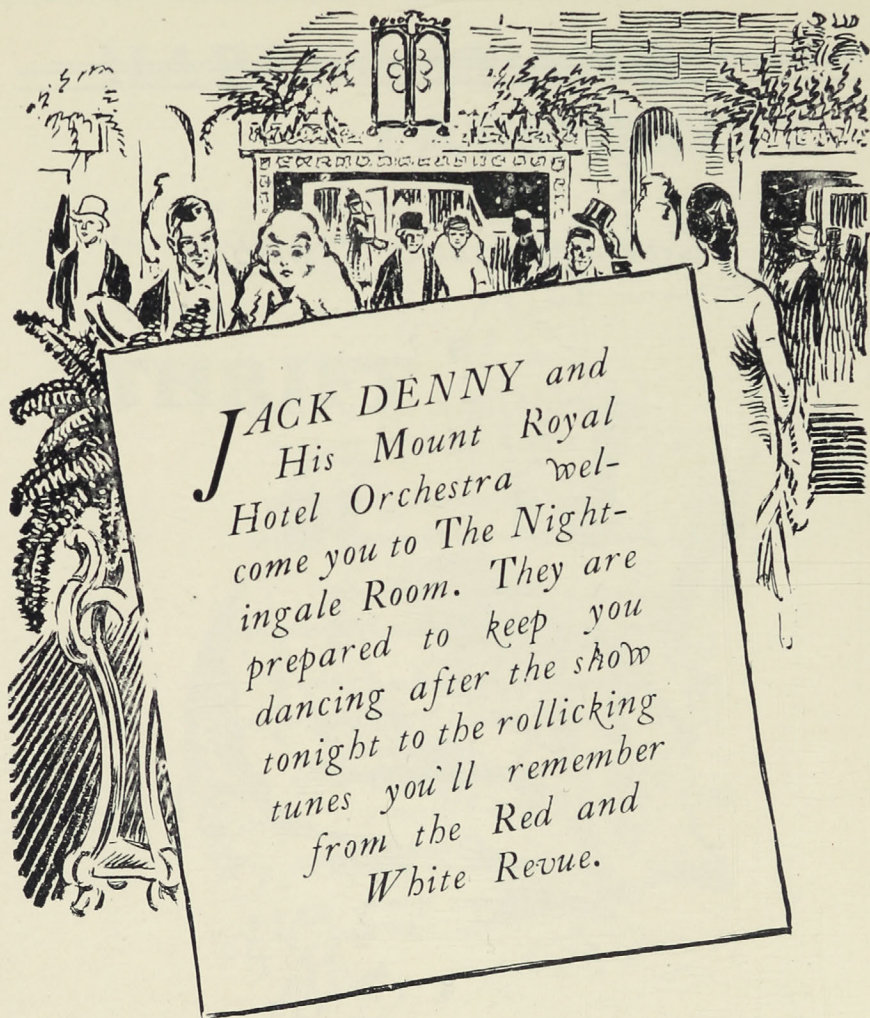 JACK DENNY and
His Mount Royal
Hotel Orchestra wel-
come you to The Night-
ingale Room. They are
prepared to keep you
dancing after the show
tonight to the rollicking
tunes you'll remember
from the Red and
White Revue.